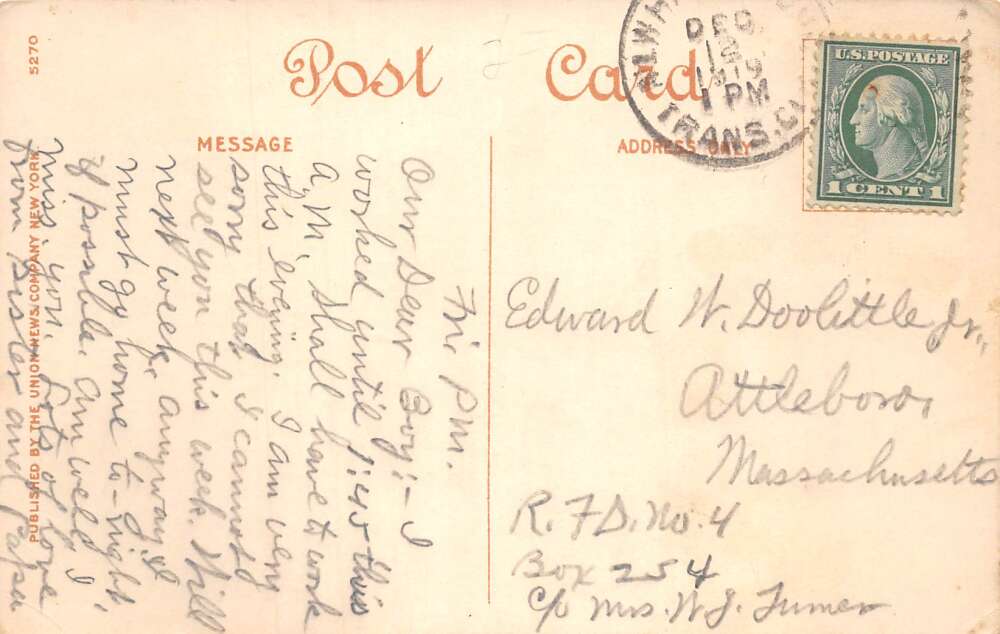 Post Card
MESSAGE
ADDRESS ONLY
5270
PUBLISHED BY THE UNION NEWS COMPANY NEW YORK
DEC
12
1919
1 PM
TRANS. CL
U.S. POSTAGE
1 CENT 1
Fri. P.M.
Our Dear Boy:- I
worked until 1:40 this
A.M. Shall have to work
this evening. I am very
sorry that I cannot
see you this week. Will
next week, anyway. I
must go home to-night
if possible. Am well. I
miss you. Lots of love
from sister and Papa
Edward W. Doolittle Jr.,
Attleboro,
Massachusetts
R.F.D. No. 4
Box 254
c/o Mrs. W. J. Turner